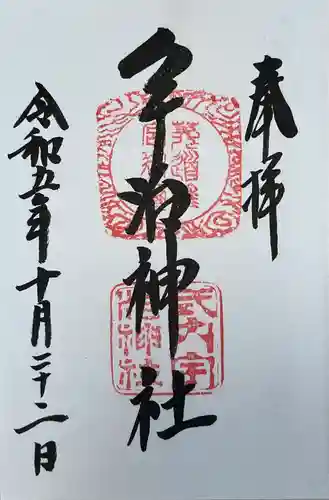 奉拝
宇治神社
令和五年十月二十二日
式内宇
治神社